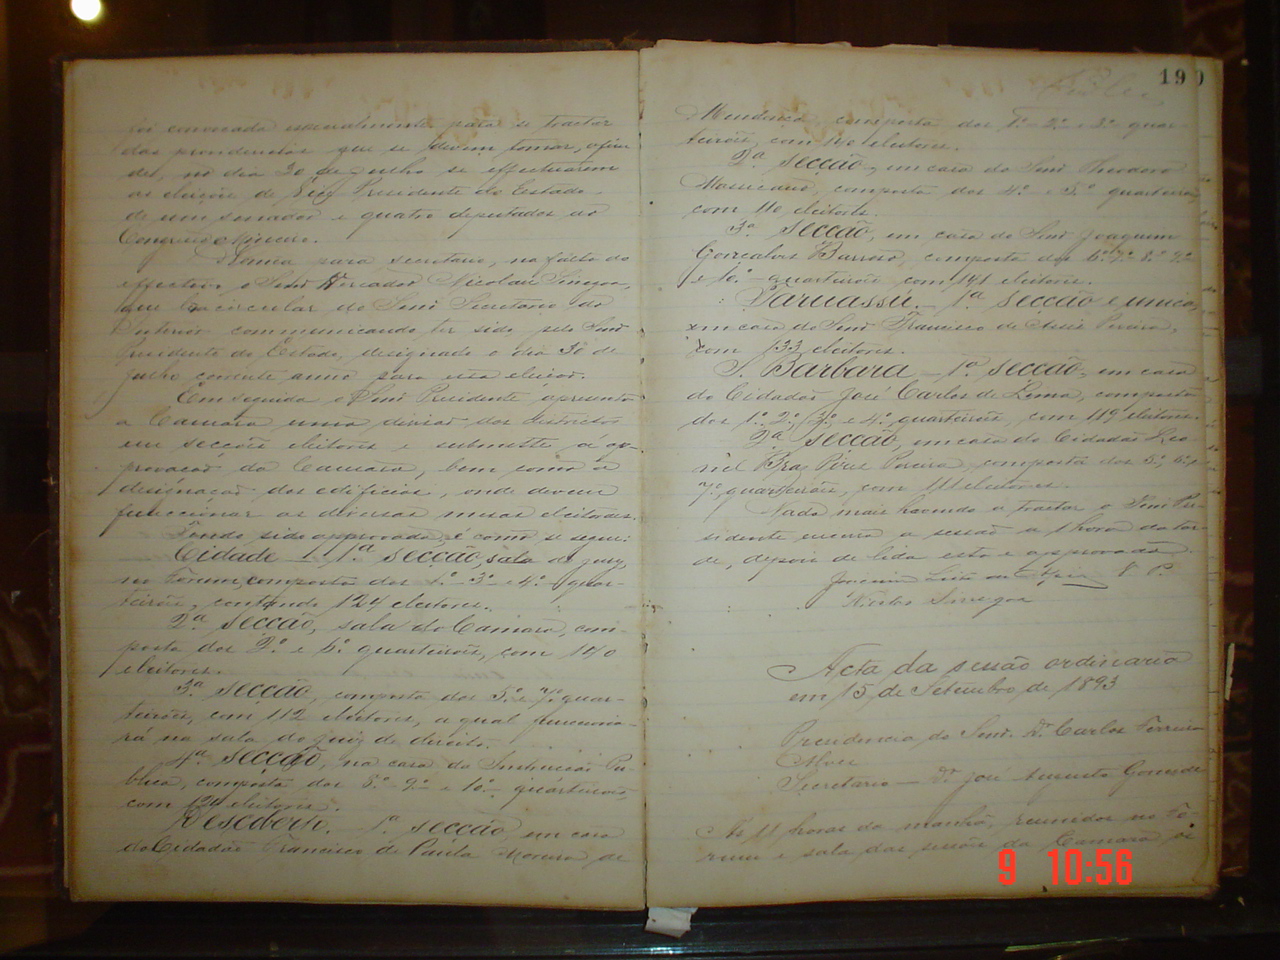 foi convocada especialmente para se tractar
das providencias que se devem tomar, afim
de, no dia 30 de julho se effectuarem
as eleições de Presidente do Estado,
de um senador e quatro deputados ao
Congresso Mineiro.
para secretario, na falta do
effectivo o Senr Vereador Nicolau
circular do Senr Secretario do
Interior communicando ter sido, pelo Senr
Presidente do Estado, designado o dia 30 de
julho corrente anno para essa eleição.
Em seguida o Senr Presidente apresenta
a Camara uma divisão dos districtos
em secções eleitores e submette á ap-
provação da Camara, bem como a
designação dos edificios, onde devem
funccionar as diversas mesas eleitoraes.
Tendo sido approvada, é como se segue:
Cidade 1ª secção, sala do jury,
no Forum, composta dos 1º 3º e 4º quar-
teirões, contendo 124 eleitores.
2ª secção, sala da Camara, com-
posta dos 2º e 6º quarteirões, com 140
eleitores.
3ª secção, composta dos 5º e 7º quar-
teirões, com 112 eleitores, a qual funcciona-
rá na sala do juiz de direito.
4ª secção, na casa da Instrucção Pu-
blica, composta dos 8º 9º e 10º quarteirões,
com 124 eleitores.
1ª secção em casa
do Cidadão Francisco de Paula Moreira de
190
Mendonça composta dos 1º 2º e 3º quar-
teirões, com 140 eleitores.
2ª secção, em casa do Senr Theodoro
composta dos 4º e 5º quarteirões,
com 110 eleitores.
3ª secção, em casa do Senr Joaquim
Gonçalves Barroso, composta dos 6º 7º 8º 9º
e 10º quarteirões, com 141 eleitores.
1ª secção e unica,
em casa do Senr Francisco de Assis Pereira,
com 133 eleitores.
S. Barbara – 1ª secção, em casa
do Cidadão José Carlos de Lima, composta
dos 1º 2º, 3º e 4º quarteirões, com 119 eleitores.
2ª secção, em casa do Cidadão Leo-
nel Braz Pires Pereira, composta dos 5º, 6º e
7º quarteirões, com 111 eleitores.
Nada mais havendo a tractar o Senr Pre-
sidente encerra a sessão a 1 hora da tar-
de, depois de lida esta e approvada.
V. P.
Acta da sessão ordinaria
em 15 de Setembro de 1893
Presidencia do Senr. Dr. Carlos Ferreira
Alves
Secretario – Dr José Augusto
As 11 horas da manhã, reunidos no Fo-
rum e sala das sessões da Camara os
9 10:56